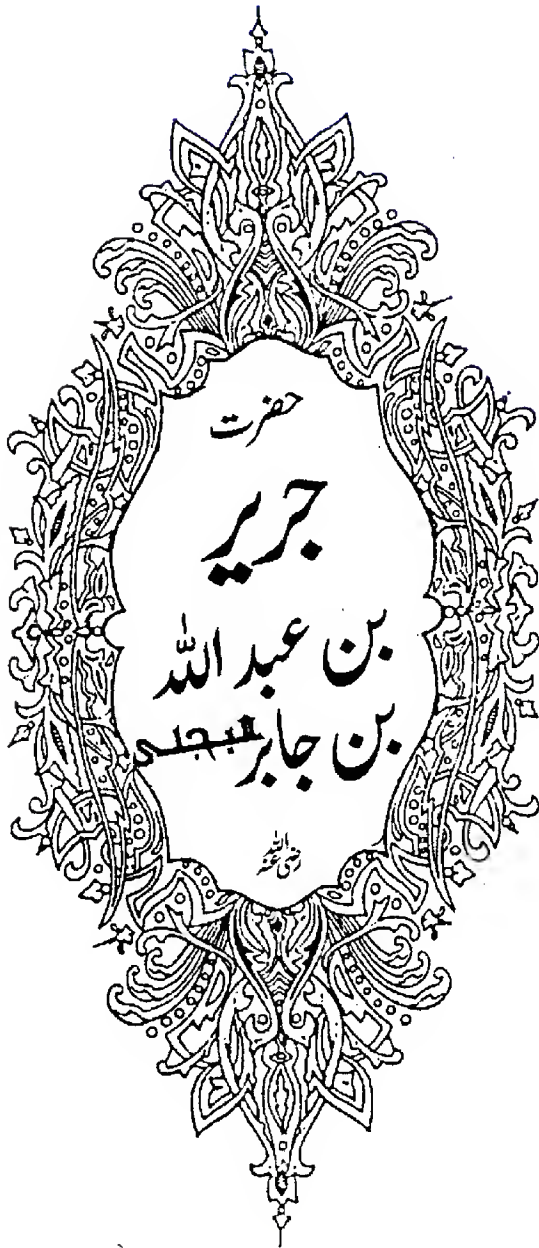 حضرت
جریر
بن عبد اللہ
بن جابر بجلی
رضی اللہ عنہ